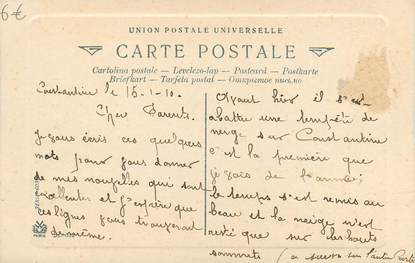 6€
UNION POSTALE UNIVERSELLE
CARTE POSTALE
Cartolina postale — Levelezo-lap — Postcard — Postkarte
Briefkart — Tarjeta postal — Открытое письмо
Constantine le 15-1-10.
Cher Parents.
je vous écris ces quelques
mots pour vous donner
de mes nouvelles qui sont
excellentes et j'espère que
ces lignes vous trouveront
de même.
Avant hier il s'est
abattu une tempête de
neige sur Constantine
c'est la première que
je vois de l'année;
le temps s'est remis au
beau et la neige n'est
resté que sur les hauts
sommets (a suivre sur l'autre carte
PARIS